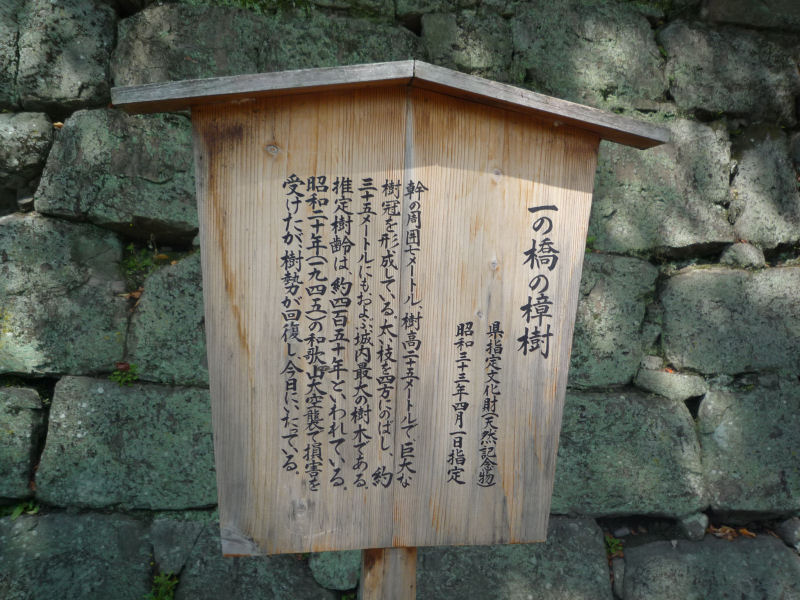 一の橋の樟樹
県指定文化財(天然記念物)
昭和三十三年四月一日指定
幹の周囲七メートル、樹高二十五メートルで、巨大な
樹冠を形成している。太い枝を四方にのばし、約
三十五メートルにもおよぶ城内最大の樹木である。
推定樹齢は、約四百五十年といわれている。
昭和二十年(一九四五)の和歌山大空襲で損害を
受けたが、樹勢が回復し今日にいたっている。